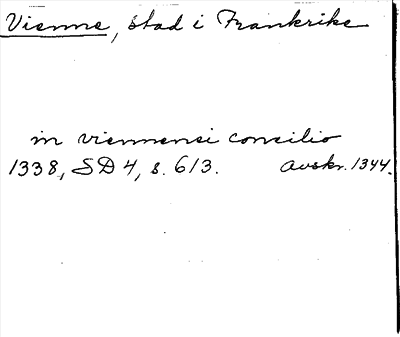 Vienne, stad i Frankrike
in viennensi concilio
1338, SD 4, s. 613. Avskr. 1344.